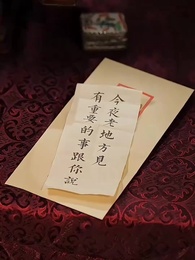 今夜老地方見
有重要的事跟你說